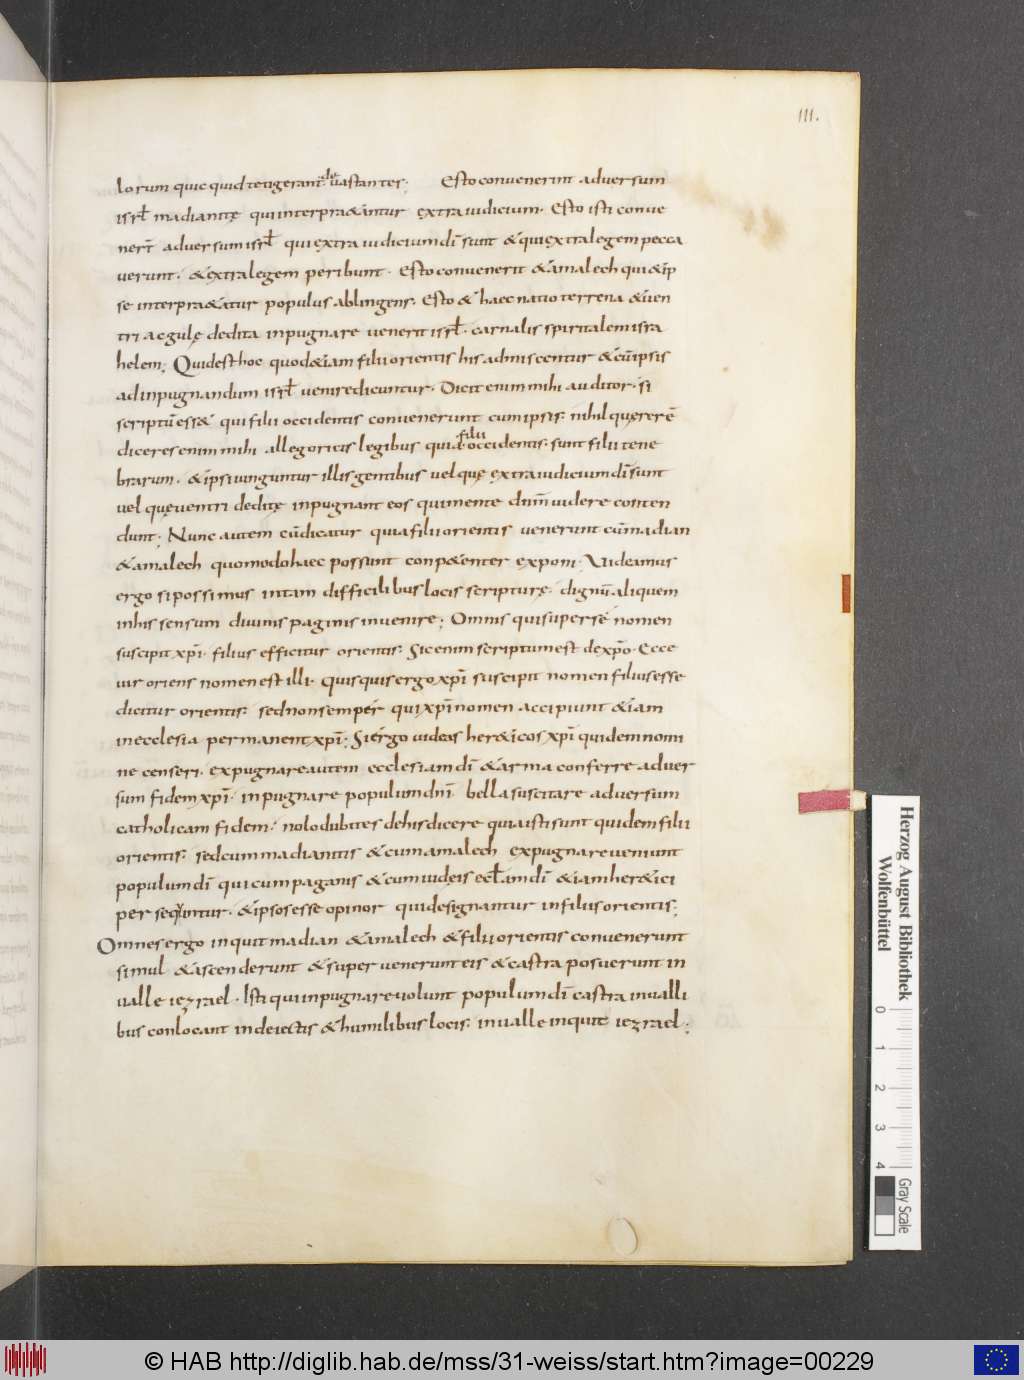 111.
lorum quicquid tetigerant devastantes; Esto convenerint adversum
isrł madianitę qui interpraetantur extra iudicium. Esto isti conve
nerīt adversum isrł qui extra iudicium dī sunt & qui extra legem pecca
verunt. & extra legem peribunt. Esto convenerit & amalech qui & ip
se interpra&atur populus ablingens. Esto & haec natio terrena & ven
tri ac gulę dedita inpugnare venerit isrł. carnalis spiritalem isra
helem; Quid est hoc quod &iam filii orientis his admiscentur & cū ipsis
ad inpugnandum isrł venire dicuntur. Dicit enim mihi auditor. si
scriptū ess& qui filii occidentis convenerunt cum ipsis. nihil quęrerē
diceres enim mihi allegoricis legibus quia filii occidentis. sunt filii tene
brarum. & ipsi iunguntur illis gentibus vel quę extra iudicium dī sunt
vel quę ventri deditę inpugnant eos qui mente dnm̄ videre conten
dunt; Nunc autem cū dicatur quia filii orientis venerunt cū madian
& amalech quomodo haec possunt conp&enter exponi. Videamus
ergo si possimus in tam difficilibus locis scripturę. dignū aliquem
in his sensum divinis paginis invenire; Omnis qui super se nomen
suscipit xp̄i. filius efficitur orientis. Sic enim scriptum est de xp̄o. Ecce
vir oriens nomen est illi. Quisquis ergo xp̄i suscipit nomen filius esse
dicitur orientis. sed non semper qui xp̄i nomen accipiunt &iam
in ecclesia permanent xp̄i; Si ergo videas her&icos xp̄i quidem nomi
ne censeri. expugnare autem ecclesiam dī & arma conferre adver
sum fidem xp̄i. inpugnare populum dnī bella suscitare adversum
catholicam fidem. nolo dubites de his dicere quia isti sunt quidem filii
orientis. sed cum madianitis & cum amalech expugnare veniunt
populum dī qui cum paganis & cum iudęis ecl̄am dī &iam her&ici
persequntur. & ipsos esse opinor qui designantur in filiis orientis;
Omnes ergo inquit madian & amalech & filii orientis convenerunt
simul & ascenderunt & supervenerunt eis & castra posuerunt in
valle iezrael. Isti qui inpugnare volunt populum dī castra in valli
bus conlocant in deiectis & humilibus locis. in valle inquit iezrael;
Herzog August Bibliothek
Wolfenbüttel
0 1 2 3 4
Gray Scale
© HAB http://diglib.hab.de/mss/31-weiss/start.htm?image=00229